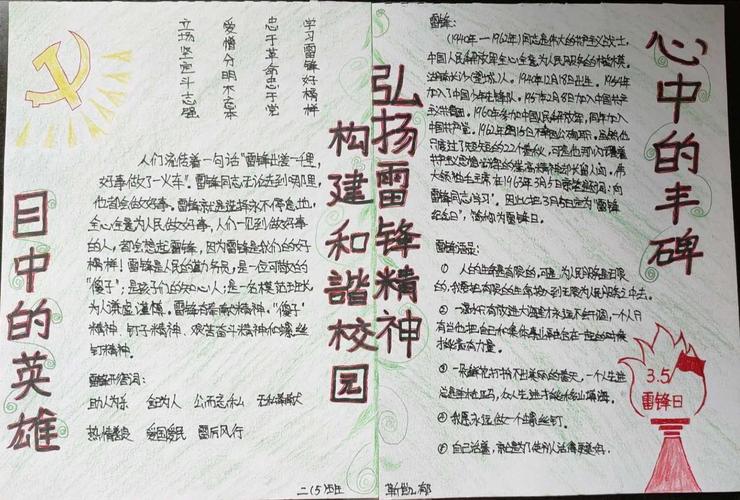 学习雷锋好榜样
忠于革命忠于党
爱憎分明不忘本
立场坚定斗志强
人们流传着一句话"雷锋出差一千里,
好事做了一火车"。雷锋同志无论走到哪里,
他都会做好事。雷锋就是这样永不停息地,
全心全意为人民做好事,人们一见到做好事
的人,都会想起雷锋,因为雷锋是我们的好
榜样!雷锋是人民的勤务员,是一位可敬的
"傻子";是孩子们的知心人;是一名模范班长
为人谦虚谨慎。雷锋有奉献精神、"傻子"
精神、钉子精神、艰苦奋斗精神和螺丝
钉精神。
雷锋形容词:
助人为乐 舍己为人 公而忘私 无私奉献
热情善良 爱国爱民 雷厉风行
目中的英雄
构建和諧校园
弘扬雷锋精神
心中的丰碑
雷锋:
(1940年—1962年)同志是伟大的共产主义战士,
中国人民解放军全心全意为人民服务的楷模。
1940年12月18日出生。1954年
加入中国少年先锋队。1957年2月8日加入中国共产
主义青年团。1960年参加中国人民解放军,同年加入
中国共产党。
共产主义思想
1963年3月5日
学习"。因此把3月5日定为"雷锋
纪念日",简称为雷锋日。
雷锋语录:
① 人的生命是有限的,可是,为人民服务是无限
的,我要把有限的生命投入到无限为人民服务之中去。
② 一滴水只有放进大海里才永远不会干涸,一个人只
有当他把自己和集体事业融合在一起的时候
才能最有力量。
③ 一朵鲜花打扮不出美丽的春天,一个人先进
总是单枪匹马,众人先进才能移山填海。
④ 我愿永远做一个螺丝钉。
⑤ 自己活着,就是为了使别人活得更美好。
3.5
雷锋日
二(5)班